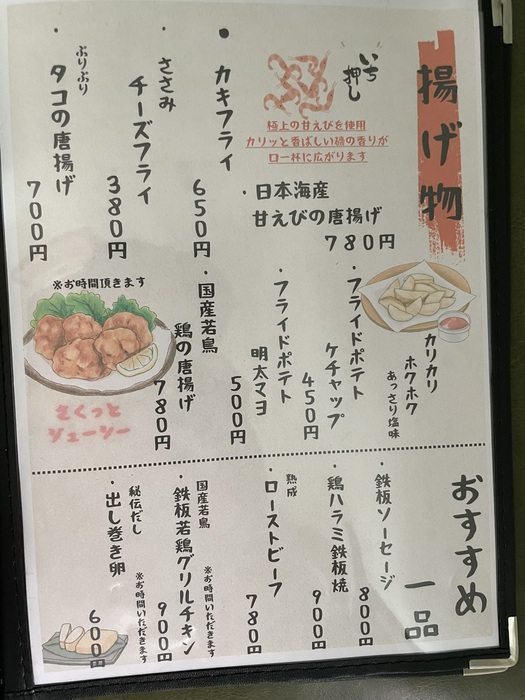 揚げ物
いち押し
極上の甘えびを使用
カリッと香ばしい磯の香りが
口一杯に広がります
・日本海産
甘えびの唐揚げ
780円
・カキフライ
650円
・ささみ
チーズフライ
380円
・ぷりぷり
タコの唐揚げ
700円
カリカリ
ホクホク
あっさり塩味
・フライドポテト
ケチャップ
450円
・フライドポテト
明太マヨ
500円
・国産若鳥
鶏の唐揚げ
780円
※お時間頂きます
さくっと
ジューシー
おすすめ
一品
・鉄板ソーセージ
800円
・鶏ハラミ鉄板焼
900円
熟成
・ローストビーフ
780円
国産若鳥
・鉄板若鶏グリルチキン
※お時間いただきます
900円
秘伝だし
・出し巻き卵
※お時間いただきます
600円